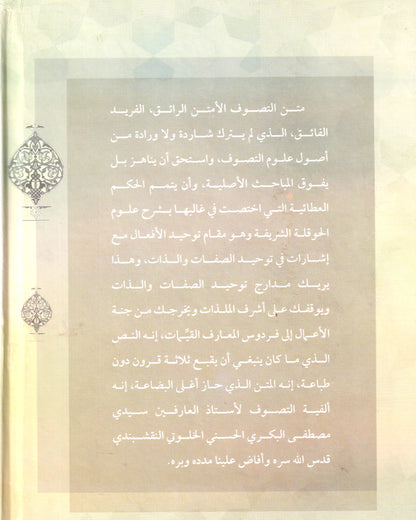 متن التصوف الأمتن الرائق، الفريد
الفائق، الذي لم يترك شاردة ولا ورادة من
أصول علوم التصوف، واستحق أن يناهز بل
يفوق المباحث الأصلية، وأن يتمم الحكم
العطائية التي اختصت في غالبها بشرح علوم
الحوقلة الشريفة وهو مقام توحيد الأفعال مع
إشارات في توحيد الصفات والذات، وهذا
يربك مدارج توحيد الصفات والذات
ويوقفك على أشرف الملذات ويخرجك من جنة
الأعمال إلى فردوس المعارف القيّمات، إنه النص
الذي ما كان ينبغي أن يقبع ثلاثة قرون دون
طباعة، إنه المتن الذي حاز أغلى البضاعة، إنه
ألفية التصوف لأستاذ العارفين سيدي
مصطفى البكري الحسني الخلوتي النقشبندي
قدس الله سره وأفاض علينا مدده وبره.